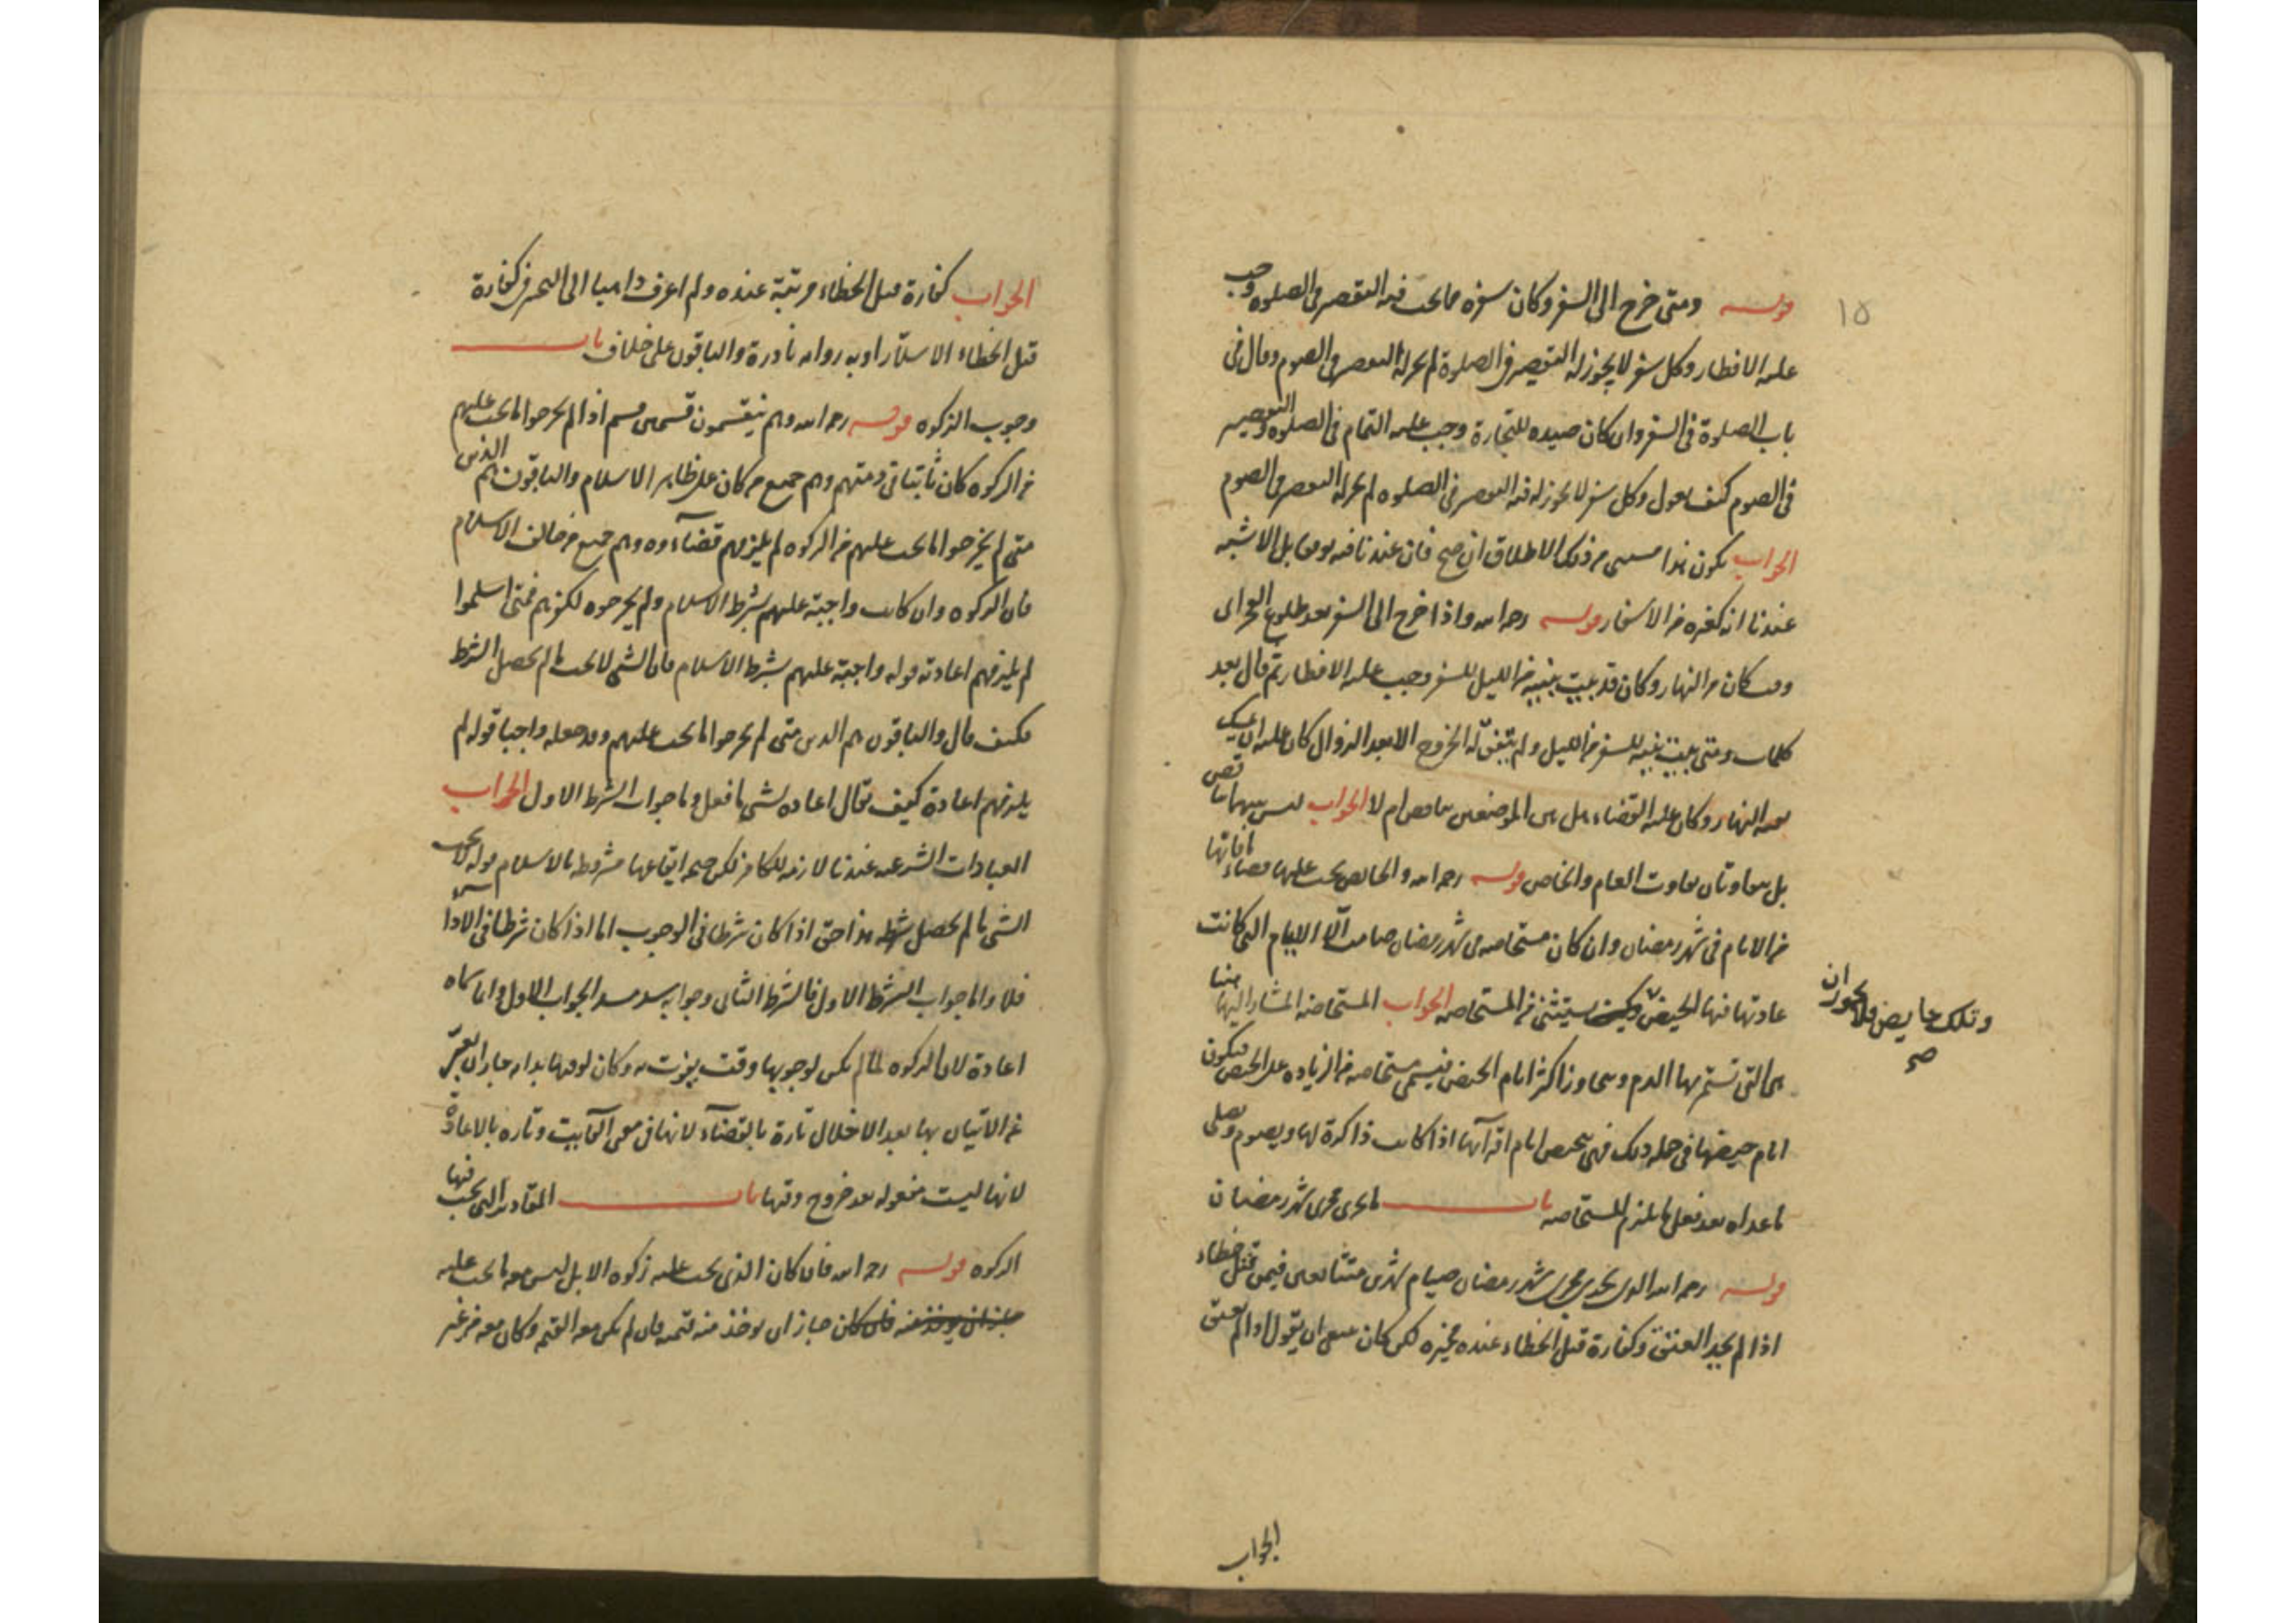 ١٥
قوله ومتى خرج الى السفر وكان سفره مما يجب فيه التقصير فى الصلوة وجب
عليه الافطار وكل سفر لا يجوز له التقصير فى الصلوة لم يجز له التقصير فى الصوم وقال فى
باب الصلوة فى السفر وان كان صيده للتجارة وجب عليه التمام فى الصلوة والتقصير
فى الصوم كيف يقول وكل سفر لا يجوز له فيه التقصير فى الصلوه لم يجز له التقصير فى الصوم
الجواب يكون هذا مستثنى من ذلك الاطلاق ان صح فان عندنا فيه توقفا بل الاشبه
عندنا انه كغيره من الأسفار قوله رحمه الله واذا خرج الى السفر بعد طلوع الفجر اى
وقت كان من النهار وكان قد بيت بنيته من الليل للسفر وجب عليه الافطار ثم قال بعد
كلمات ومتى بيت بنيته للسفر من الليل ولم يتفق له الخروج الا بعد الزوال كان عليه ان يمسك
بقية النهار وكان عليه القضاء هل بين الموضعين تناقض ام لا الجواب ليس بينهما تناقض
بل يتفاوتان تفاوت العام والخاص قوله رحمه الله والحائض يجب عليها قضاء ما فاتها
من الايام فى شهر رمضان وان كان مستحاضه فى شهر رمضان صامت الّا الايام التى كانت
عادتها فيها الحيض وكيف يستثنى من المستحاضه الجواب المستحاضه المشار اليها هنا
وتلك حايض فلا يجوز ان
صح
هى التى تستمر بها الدم ويتجاوز اكثر ايام الحيض فيسمى مستحاضه من الزياده على الحيض فيكون
ايام حيضها فى جمله ذلك فهى تتحيض ايام اقرآئها اذا كانت ذاكرة لها ويصوم وتصلى
ما عداه بعد فعل ما يلزم للمستحاضه باب ما يجرى مجرى شهر رمضان
قوله رحمه الله الذى يجرى مجرى شهر رمضان صيام شهرين متتابعين فيمن قتل خطاء
اذا لم يجد العتق وكفارة قتل الخطاء عنده مخيره لكن كان ينبغى ان يقول اذا لم يعتق
الجواب
الجواب كفارة قتل الخطاء مرتبة عنده ولم اعرف ذاهبا الى التخيير فى كفارة
قتل الخطاء الا سلّار اويه روايه نادرة والباقون على خلاف باب
وجوب الزكوه قوله رحمه الله وهم ينقسمون قسمين قسم اذا لم يخرجوا ما يجب عليهم
من الزكوه كان ثابتا فى ذمتهم وهم جميع من كان على ظاهر الاسلام والباقون هم الذين
متى لم يخرجوا ما يجب عليهم من الزكوه لم يلزمهم قضآءوه وهم جميع من خالف الاسلام
فان الزكوه وان كانت واجبة عليهم بشرط الاسلام ولم يخرجوه لكفرهم فمتى اسلموا
لم يلزمهم اعادته قوله واجبة عليهم بشرط الاسلام فان الشى لا يجب ما لم يحصل الشرط
فكيف قال والباقون هم الذين متى لم يخرجوا ما يجب عليهم وقد جعله واجبا قوله لم
يلزمهم اعادة كيف يقال اعاده لشى ما فعل وما جواب الشرط الاول الجواب
العبادات الشرعيه عندنا لازمه للكافر لكن صحه ايقاعها مشروطه بالاسلام قوله لا يجب
الشى ما لم يحصل شرطه هذا حق اذا كان شرطا فى الوجوب اما اذا كان شرطا فى الادا
فلا واما جواب الشرط الاول فالشرط الثانى وجوابه يسد مسد الجواب الاول وانما سماه
اعادة لان الزكوه لما لم يكن لوجوبها وقت يفوت به وكان لوقتها بدايه جاز ان يعبّر
عن الاتيان بها بعد الاخلال تارة بالقضآء لانها فى معنى الفآيت وتاره بالاعادة
لانها ليست مفعوله بعد خروج وقتها باب المقادير التى تجب فيها
الزكوه قوله رحمه الله فان كان الذى يجب عليه زكوه الابل ليس معه ما يجب عليه
جاز ان يوخذ منه فان كان جاز ان يوخذ منه قيمته فان لم يكن معه القيمه وكان معه من غير